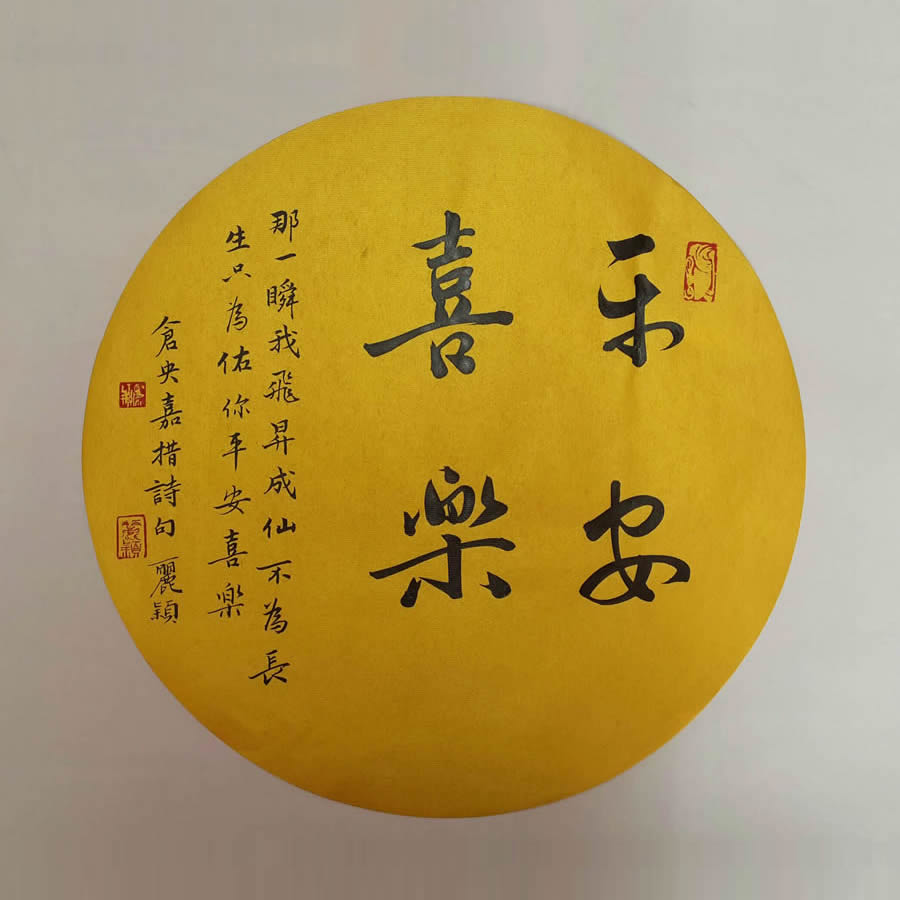 平安
喜樂
那一瞬我飛昇成仙不為長
生只為佑你平安喜樂
倉央嘉措詩句 麗穎